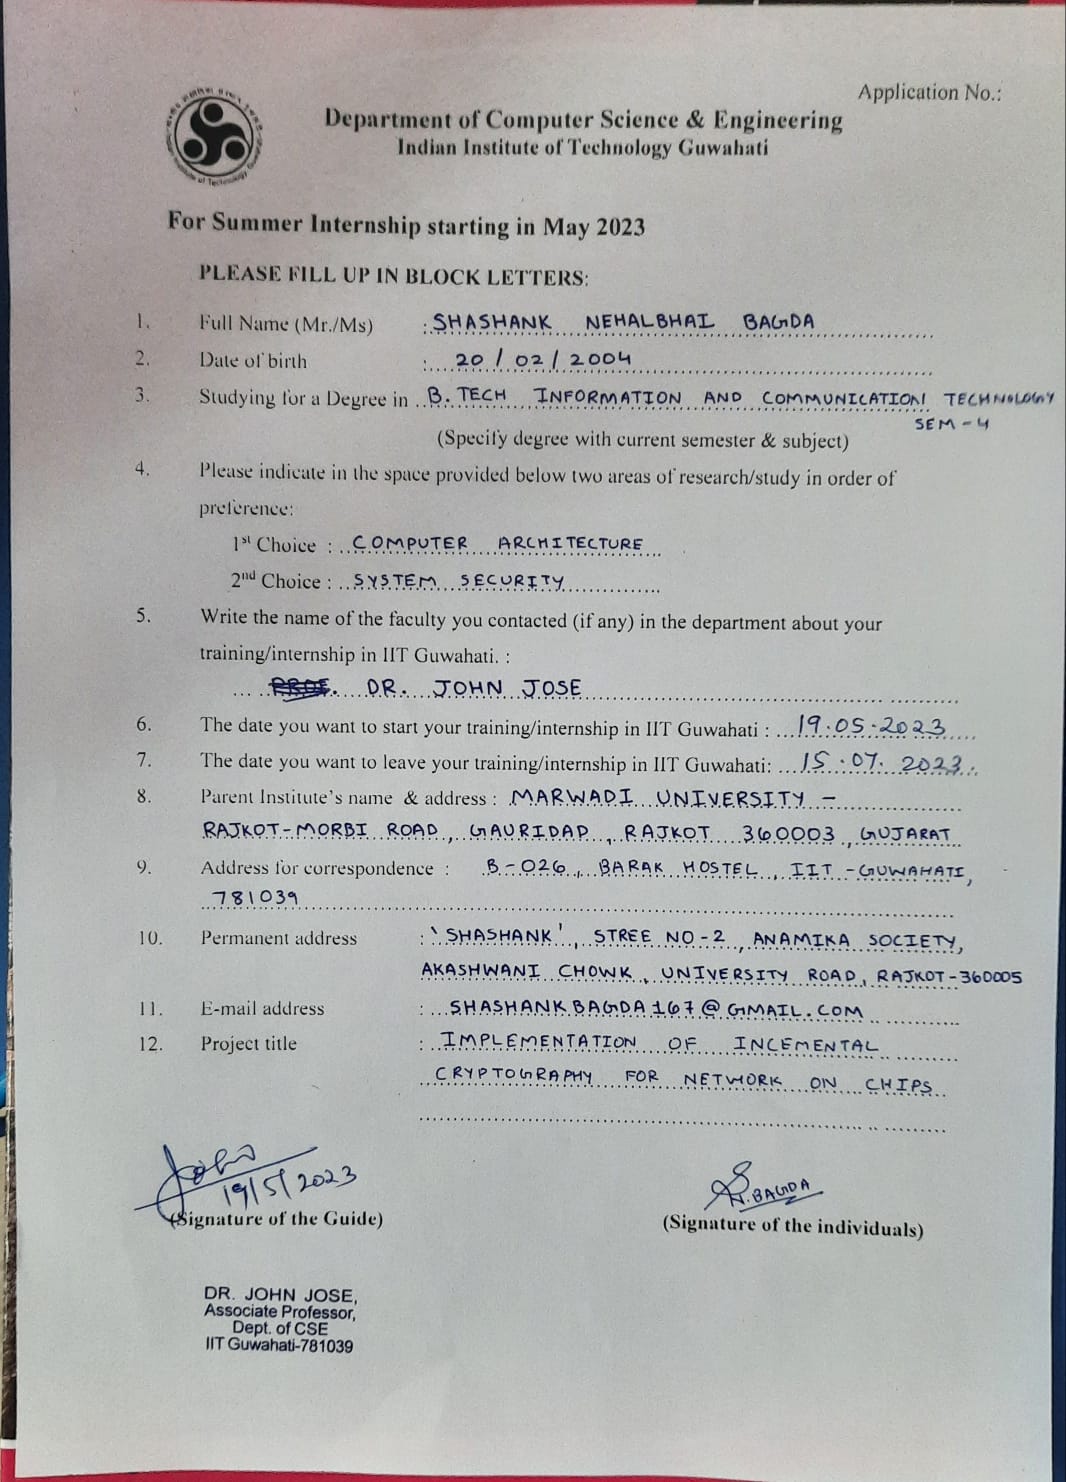 Application No.:
Department of Computer Science & Engineering
Indian Institute of Technology Guwahati
For Summer Internship starting in May 2023
PLEASE FILL UP IN BLOCK LETTERS:
1. Full Name (Mr./Ms) : SHASHANK NEHALBHAI BAGDA
2. Date of birth : 20/02/2004
3. Studying for a Degree in B.TECH INFORMATION AND COMMUNICATION TECHNOLOGY
SEM-4
(Specify degree with current semester & subject)
4. Please indicate in the space provided below two areas of research/study in order of
preference:
1st Choice : COMPUTER ARCHITECTURE
2nd Choice : SYSTEM SECURITY
5. Write the name of the faculty you contacted (if any) in the department about your
training/internship in IIT Guwahati. :
DR. JOHN JOSE
6. The date you want to start your training/internship in IIT Guwahati : 19.05.2023
7. The date you want to leave your training/internship in IIT Guwahati: 15.07.2023
8. Parent Institute's name & address : MARWADI UNIVERSITY -
RAJKOT-MORBI ROAD, GAURIDAD, RAJKOT 360003, GUJARAT
9. Address for correspondence : B-026, BARAK HOSTEL, IIT-GUWAHATI,
781039
10. Permanent address : 'SHASHANK', STREE NO-2, ANAMIKA SOCIETY,
AKASHWANI CHOWK, UNIVERSITY ROAD, RAJKOT-360005
11. E-mail address : SHASHANK.BAGDA167@GMAIL.COM
12. Project title : IMPLEMENTATION OF INCEMENTAL
CRYPTOGRAPHY FOR NETWORK ON CHIPS
John
19/5/2023
S.N.BAGDA
(Signature of the Guide)
(Signature of the individuals)
DR. JOHN JOSE,
Associate Professor,
Dept. of CSE
IIT Guwahati-781039